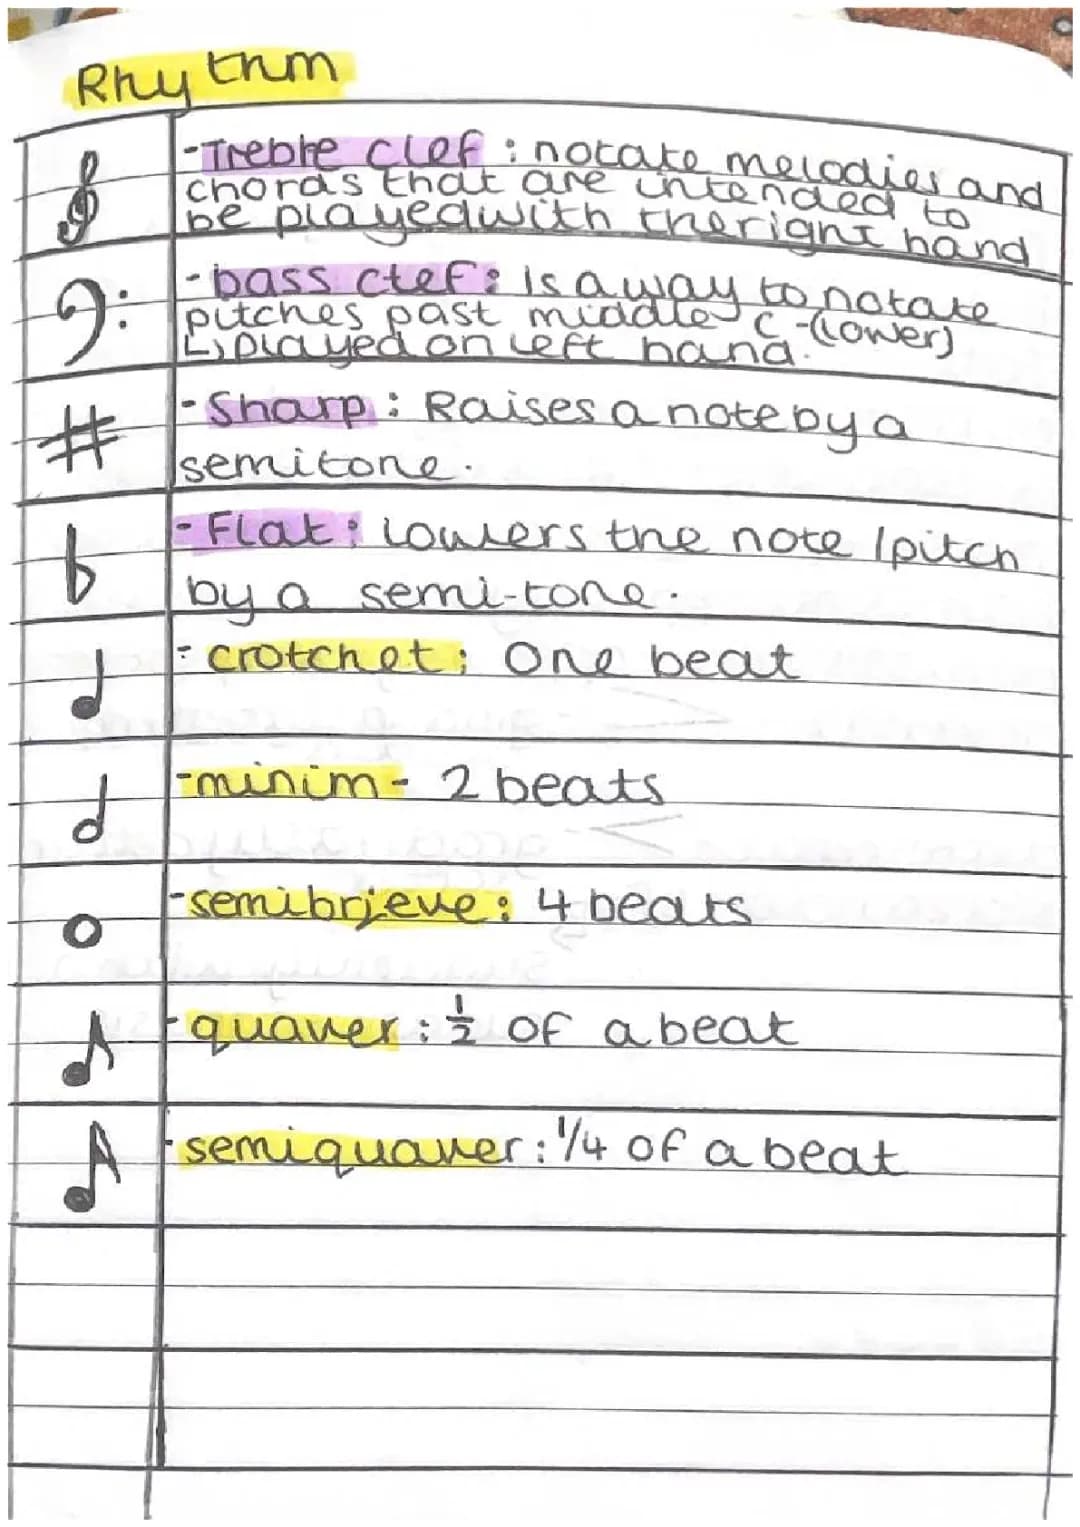 Rhythm
-Treble clef : notate melodies and
chords that are intended to
be played with the right hand
-bass clef: Is a way to notate
pitches past middle C -(lower)
↳played on left hand.
-Sharp : Raises a note by a
semitone.
-Flat : lowers the note /pitch
by a semi-tone.
-crotchet: One beat
-minim- 2 beats
-semibrieve: 4 beats
-quaver : ½ of a beat
-semiquaver: 1/4 of a beat